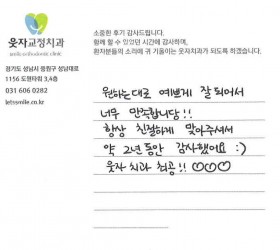 웃자교정치과
smile orthodontic clinic
경기도 성남시 중원구 성남대로
1156 도원타워 3,4층
031 606 0282
letssmile.co.kr
소중한 후기 감사드립니다.
함께 할 수 있었던 시간에 감사하며,
환자분들의 소리에 귀 기울이는 웃자치과가 되도록 하겠습니다.
원하는대로 예쁘게 잘 되어서
너무 만족합니당!!
항상 친절하게 맞아주셔서
약 2년 동안 감사했어요 :)
웃자 치과 최공!! ♡♡♡